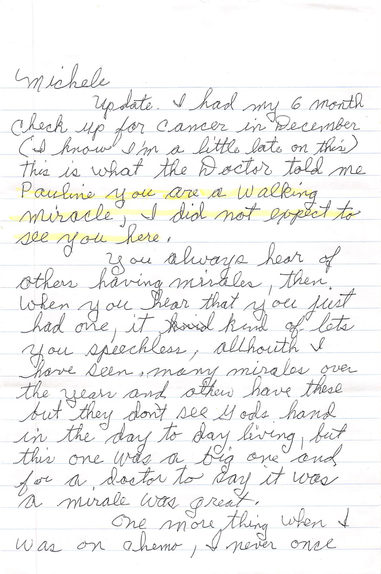 Michele
Update. I had my 6 month
check up for cancer in December
(I know I'm a little late on this)
this is what the Doctor told me
Pauline you are a walking
miracle, I did not expect to
see you here.
You always hear of
others having mirales, then
when you hear that you just
had one, it kind of lets
you speechless, allthouth I
have seen many mirales over
the years and other have these
but they don't see Gods hand
in the day to day living, but
this one was a big one and
for a doctor to say it was
a mirale was great.
One more thing when I
was on chemo, I never once